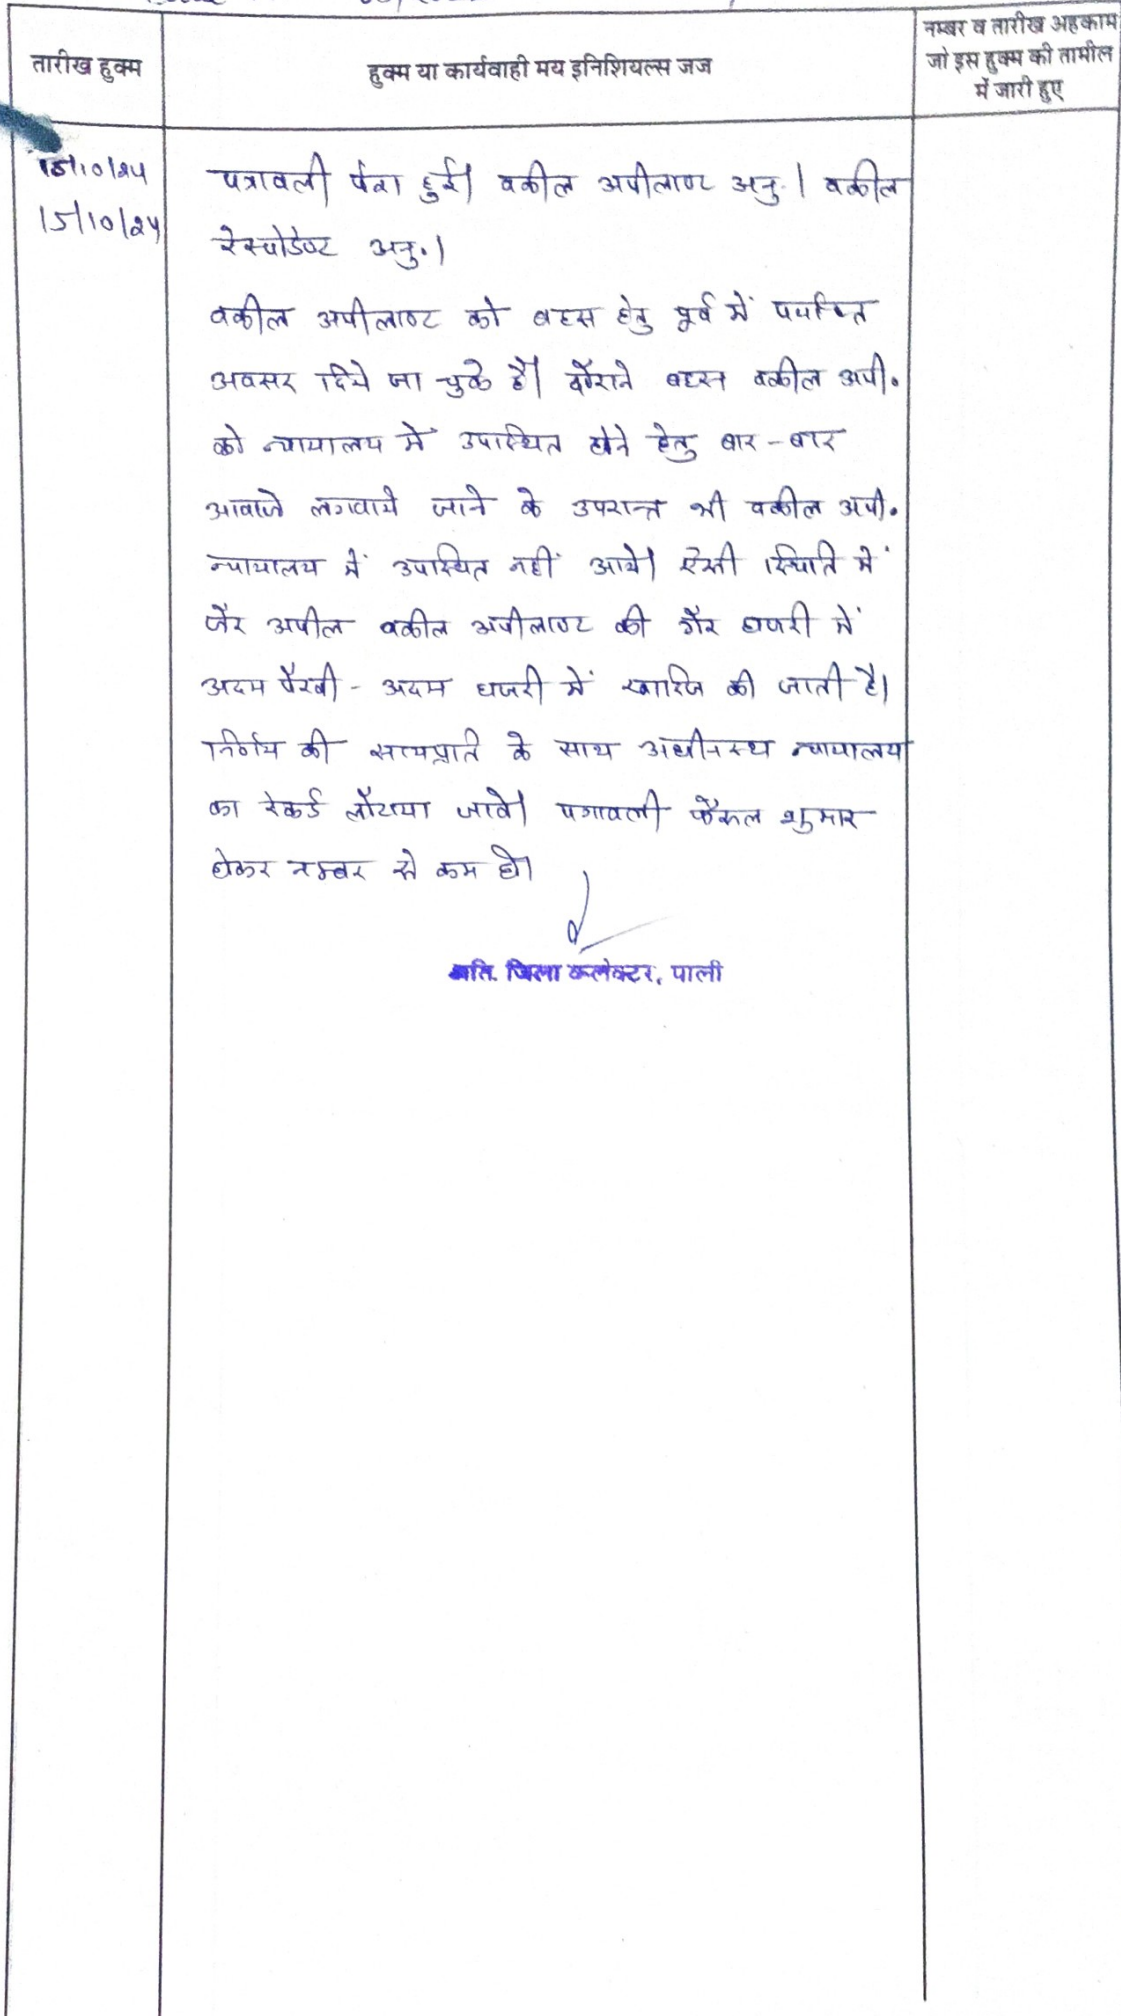 तारीख हुक्म
हुक्म या कार्यवाही मय इनिशियल्स जज
नम्बर व तारीख अहकाम
जो इस हुक्म की तामील
में जारी हुए
15/10/24
15/10/24
पत्रावली पेश हुई। वकील अपीलाण्ट अनु.। वकील
रेस्पोडेण्ट अनु.।
वकील अपीलाण्ट को बहस हेतु पूर्व में पर्याप्त
अवसर दिये जा चुके है। दौराने बहस वकील अपी.
को न्यायालय में उपस्थित होने हेतु बार-बार
आवाजे लगवाये जाने के उपरान्त भी वकील अपी.
न्यायालय में उपस्थित नहीं आये। ऐसी स्थिति में
जैर अपील वकील अपीलाण्ट की गैर हाजरी में
अदम पैरवी - अदम हाजरी में खारिज की जाती है।
निर्णय की सत्यप्रति के साथ अधीनस्थ न्यायालय
का रेकर्ड लौटाया जावे। पत्रावली फैसल शुमार
होकर नम्बर से कम हो।
अति. जिला कलेक्टर, पाली